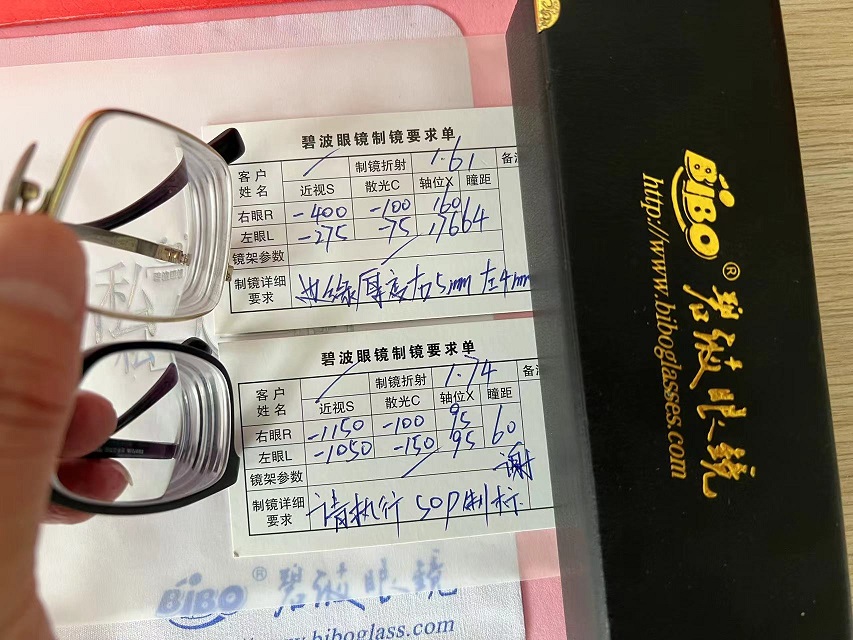 碧波眼镜制镜要求单
客户姓名 制镜折射 1.61 备
近视S 散光C 轴位X 瞳距
右眼R -400 -100 160
左眼L -275 -75 17664
镜架参数
制镜详细要求 边缘厚度右5mm 左4mm
碧波眼镜制镜要求单
客户姓名 制镜折射 1.74 备
近视S 散光C 轴位X 瞳距
右眼R -1150 -100 95 60
左眼L -1050 -150 95
镜架参数 谢
制镜详细要求 请执行SOP制标
私
BiBO® 碧波眼镜
www.biboglass.com
BiBO® 碧波眼镜
http://www.biboglasses.com